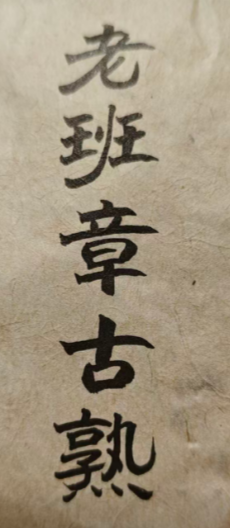 老班章古熟